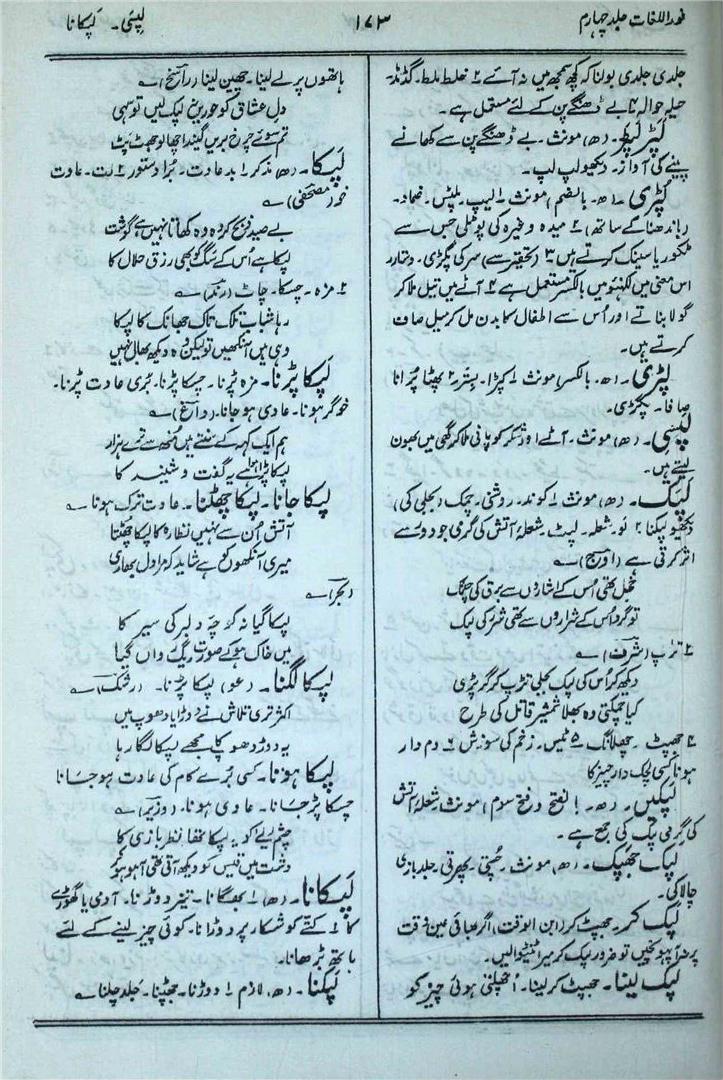 نور اللغات جلد چہارم
۱۷۳
لپسی۔ لپکانا
جلدی جلدی بولنا کہ کچھ سمجھ میں نہ آئے ۲ خلط ملط۔ گڈمڈ۔
حیلہ حوالہ ۳ بے ڈھنگے پن کے لئے مستعمل ہے۔
لپڑ لپڑ۔ (ھ) مونث۔ بے ڈھنگے پن سے کھانے
پینے کی آواز۔ دیکھو لپ لپ۔
لپڑی۔ (ھ۔ بالضم) مونث ۱ لیپ۔ پلٹس۔ ضماد۔
(باندھنا کے ساتھ) ۲ میدہ وغیرہ کی پوٹلی جس سے
ٹکور یا سینک کرتے ہیں ۳ (تحقیر سے) سر کی پگڑی۔ دستار
اس معنی میں لکھنؤ میں بالکسر مستعمل ہے ۴ آٹے میں تیل ملا کر
گولا بناتے اور اُس سے اطفال کا بدن مل کر میل صاف
کرتے ہیں۔
لپڑی۔ (ھ۔ بالکسر) مونث ۱ کپڑا۔ بستر ۲ پھٹا پُرانا
صافا۔ پگڑی۔
لپسی۔ (ھ) مونث۔ آٹے اور شکر کو پانی ملا کر گھی میں بھون
لیتے ہیں۔
لپک۔ (ھ) مونث ۱ کوند۔ روشنی۔ چمک (بجلی کی)
دیکھو لپکنا ۲ لَو۔ شعلہ۔ لپٹ۔ شعلۂ آتش کی گرمی جو دور سے
اثر کرتی ہے (اوج) ؎
خجل تھی اُس کے اشاروں سے برق کی چمک
تو گرد اُس کے شراروں سے تھی شرر کی لپک
۳ تڑپ (شرف) ؎
دیکھ کر اُس کی لپک بجلی تڑپ کر گر پڑی
کیا چمکتی وہ بھلا شمشیر قاتل کی طرح
۴ جھپٹ۔ چھلانگ ۵ ٹیس۔ زخم کی سوزش ۶ دم دار
ہونا کسی لچک دار چیز کا
لپکیں۔ (ھ۔ بالفتح و فتح سوم) مونث۔ شعلۂ آتش
کی گرمی لپک کی جمع ہے۔
لپک جھپک۔ (ھ) مونث۔ چُستی۔ پھرتی۔ جلد بازی
چالاکی۔
لپک کر۔ جھپٹ کر (ابن الوقت) اگر بھائی عین وقت
پر نہ آ پہونچیں تو ضرور لپک کر میرا ٹینٹوا لیں۔
لپک لینا۔ جھپٹ کر لینا۔ اُچھلتی ہوئی چیز کو
ہاتھوں پر لے لینا۔ چھین لینا (راسخ) ؎
دلِ عشاق کو حوریں لپک لیں تو سہی
تم سوئے چرخ بریں گیند اچھالو جھٹ پٹ
لپکا۔ (ھ) مذکر ۱ بد عادت۔ بُرا دستور ۲ لت۔ عادت
خو (مصحفی) ؎
بے صید ذبح کردہ وہ کھاتا نہیں ہے گوشت
لپکا ہے اُس کے سگ کو بھی رزق حلال کا
۳ مزہ۔ چسکا۔ چاٹ (رند) ؎
رہا شباب تلک تاک جھانک کا لپکا
وہی ہیں آنکھیں تو لیکن وہ دیکھ بھال نہیں
لپکا پڑنا۔ مزہ پڑنا۔ چسکا پڑنا۔ بُری عادت پڑنا۔
خوگر ہونا۔ عادی ہو جانا۔ (داغ) ؎
ہم ایک کہہ کے سنتے ہیں مُنھ سے ترے ہزار
لپکا پڑا ہوا ہے یہ گفت و شنید کا
لپکا جانا۔ لپکا چھٹنا۔ عادت ترک ہونا ؎
آتش اُن سے نہیں نظارہ کا لپکا چھٹتا
میری آنکھوں کو ہے شاید کہ مزا دل بھاری
(بحر) ؎
لپکا گیا نہ کوچۂ دلبر کی سیر کا
میں خاک ہو کے صورت ریگ رواں گیا
لپکا لگنا۔ (عو) لپکا پڑنا۔ (رشک) ؎
اکثر تری تلاش نے دوڑایا دھوپ میں
یہ دوڑ دھوپ کا مجھے لپکا لگا رہا
لپکا ہونا۔ کسی بُرے کام کی عادت ہو جانا
چسکا پڑ جانا۔ عادی ہونا۔ (وزیر) ؎
چشم لیلے کو یہ لپکا تھا نظر بازی کا
دشت میں قیس کو دیکھ آتی تھی آہو ہو کر
لپکانا۔ (ھ) ۱ بھگانا۔ تیز دوڑنا۔ آدمی یا گھوڑے
کا ۲ کتے کو شکار پر دوڑانا۔ کوئی چیز لینے کے لئے
ہاتھ بڑھانا۔
لپکنا۔ (ھ) لازم ۱ دوڑنا۔ جھپٹنا۔ جلد چلنا ؎